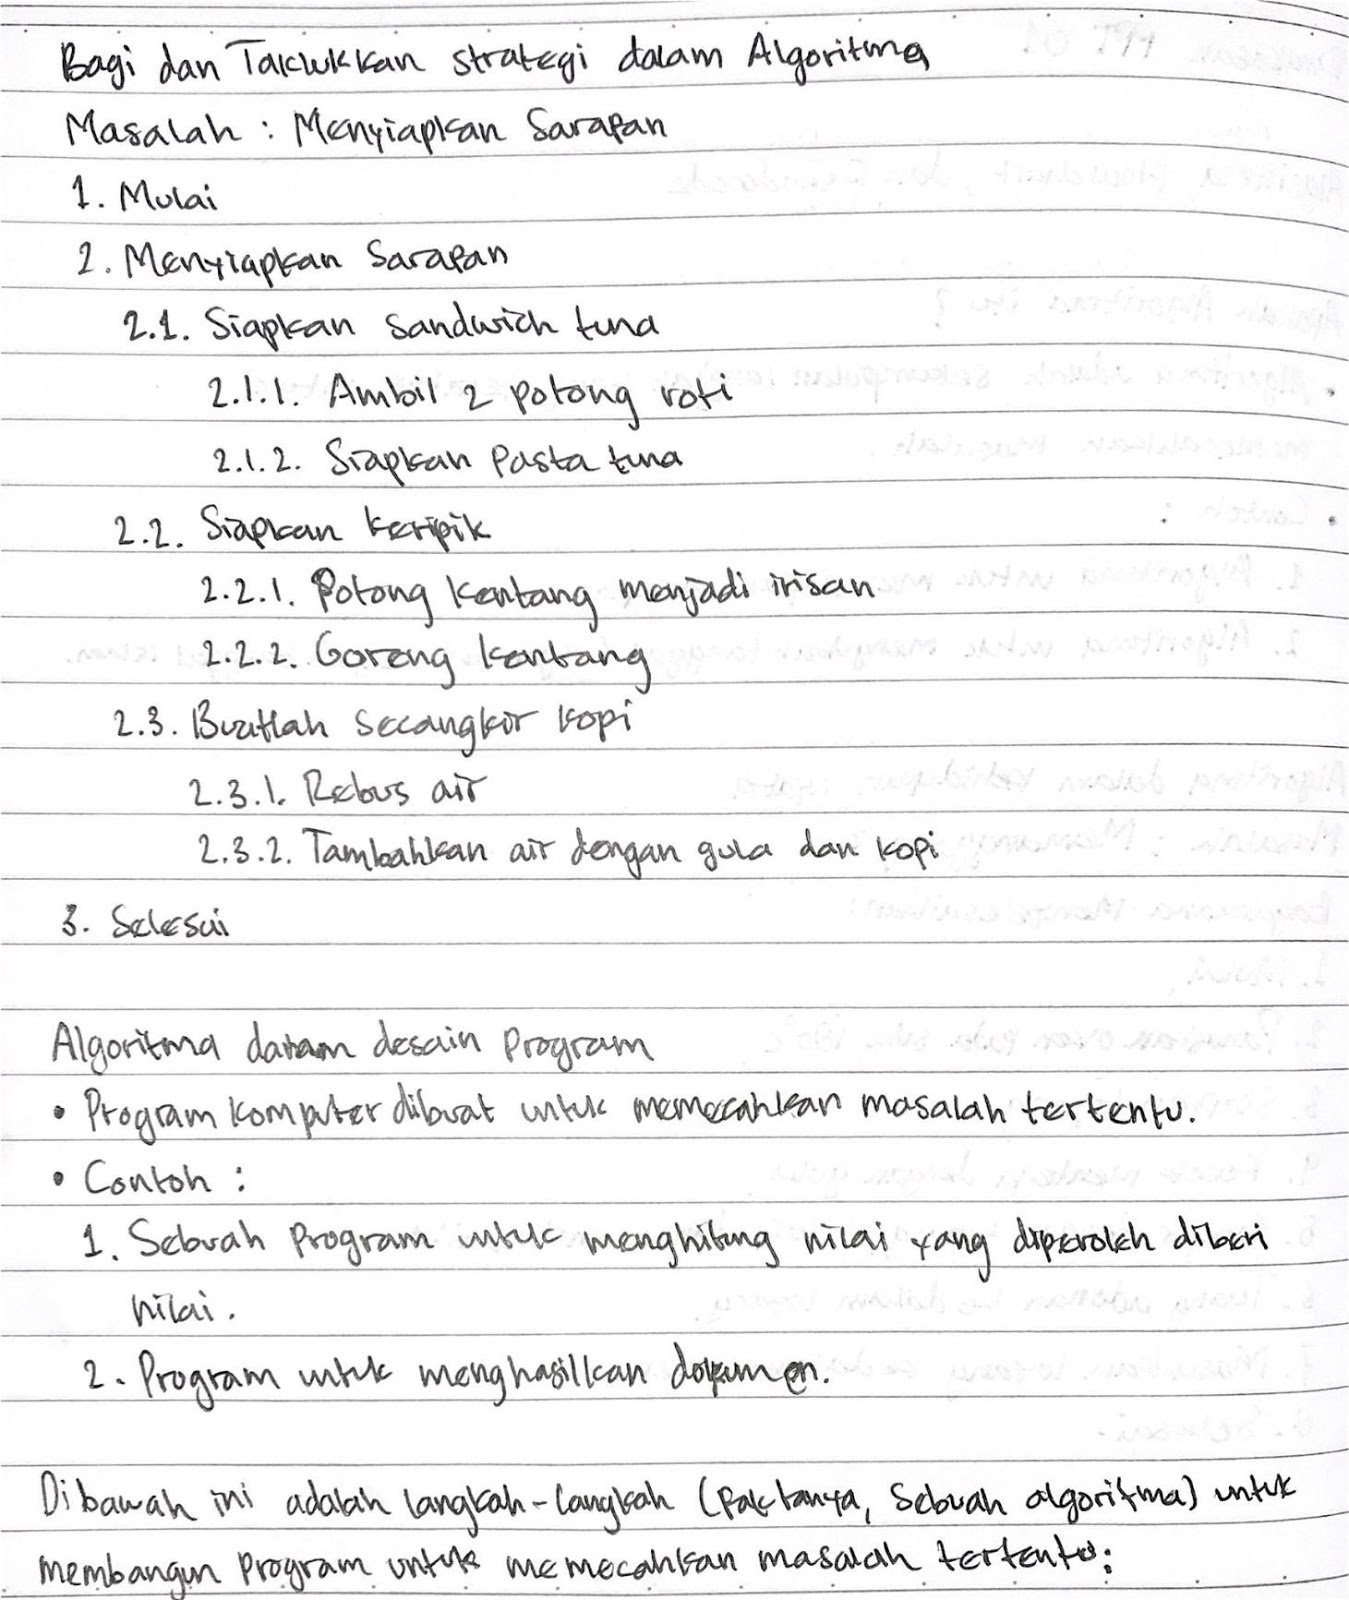 Bagi dan Taklukkan strategi dalam Algoritma
Masalah : Menyiapkan Sarapan
1. Mulai
2. Menyiapkan Sarapan
2.1. Siapkan sandwich tuna
2.1.1. Ambil 2 potong roti
2.1.2. Siapkan Pasta tuna
2.2. Siapkan keripik
2.2.1. Potong kentang menjadi irisan
2.2.2. Goreng kentang
2.3. Buatlah secangkir kopi
2.3.1. Rebus air
2.3.2. Tambahkan air dengan gula dan kopi
3. Selesai
Algoritma dalam desain Program
• Program komputer dibuat untuk memecahkan masalah tertentu.
• Contoh :
1. Sebuah Program untuk menghitung nilai yang diperoleh diberi
nilai.
2. Program untuk menghasilkan dokumen.
Dibawah ini adalah langkah-langkah (faktanya, sebuah algoritma) untuk
membangun Program untuk memecahkan masalah tertentu: